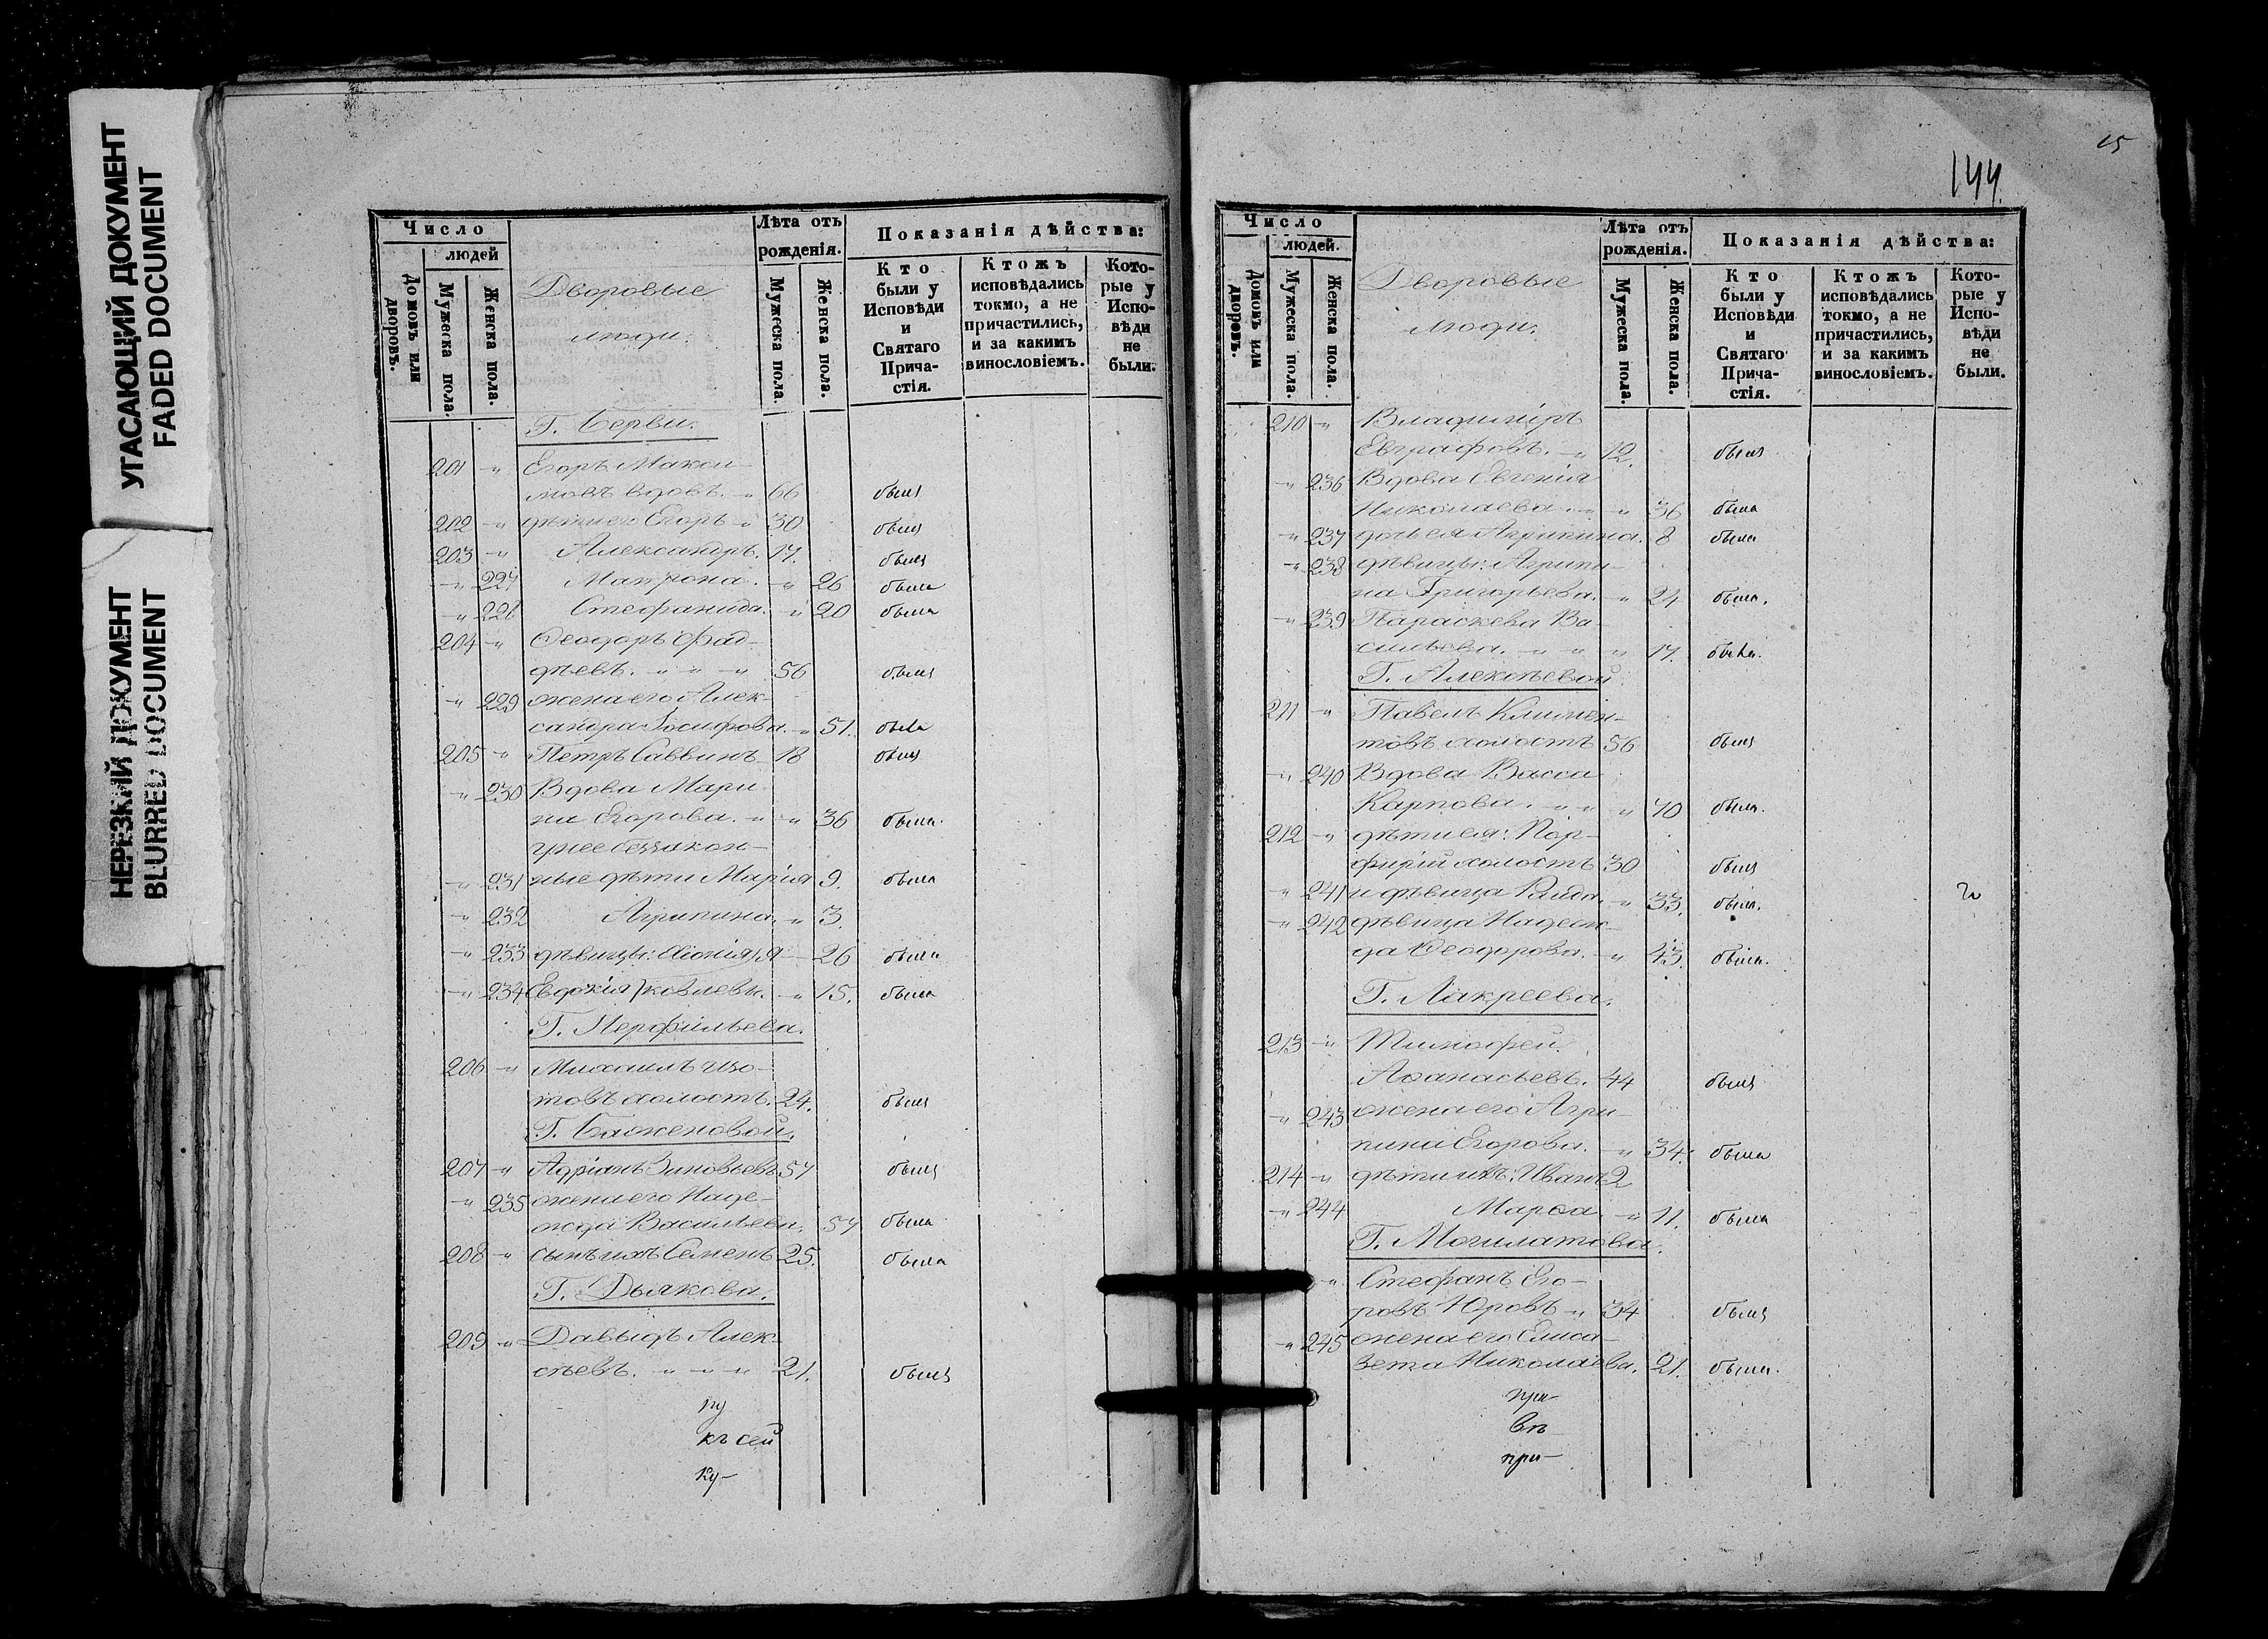 УГАСАЮЩИЙ ДОКУМЕНТ
FADED DOCUMENT
НЕРЕЗКИЙ ДОКУМЕНТ
BLURRED DOCUMENT
Число
людей
Домовъ или дворовъ.
Мужеска пола.
Женска пола.
Дворовые
люди.
Лѣта отъ
рожденія.
Мужеска пола.
Женска пола.
Показанія дѣйства:
Кто
были у
Исповѣди
и
Святаго
Прича-
стія.
Ктожъ
исповѣдались
токмо, а не
причастились,
и за какимъ
винословіемъ.
Кото-
рые у
Испо-
вѣди
не
были.
Г. Берви.
201 " Егоръ Макси-
мовъ вдовъ. " 66 былъ
202 " дѣти его Егоръ " 30 былъ
203 " Александръ. 17. былъ
" 227 Матрона. " 26 была
" 228 Стефанида. " 20 была
204 " Ѳеодоръ Фад-
дѣевъ. " " " 56 былъ
" 229 жена его Алек-
сандра Іосифова. " 51. была
205 " Петръ Саввинъ 18 былъ
" 230 Вдова Мари-
на Егорова. " " 36 была.
у нее беззакон-
" 231 ные дѣти Марія 9. была
" 232 Агрипина. " 3.
" 233 дѣвицы: 26 была
" 234 Евдокія Яковлевы. " 15. была
Г. Перфильева.
206 " Михаилъ Изо-
товъ холостъ. 24. былъ
Г. Баженовой.
207 " Адріанъ Зиновьевъ 57 былъ
" 235 жена его Наде-
жда Васильева. 57 была
208 " сынъ ихъ Семенъ 25. была
Г. Дьякова.
209 " Давыдъ Алек-
сѣевъ. " " " 21. былъ
къ сей
15
144.
Число
людей.
Домовъ или дворовъ.
Мужеска пола.
Женска пола.
Дворовые
люди.
Лѣта отъ
рожденія.
Мужеска пола.
Женска пола.
Показанія дѣйства:
Кто
были у
Исповѣди
и
Святаго
Прича-
стія.
Ктожъ
исповѣдались
токмо, а не
причастились,
и за какимъ
винословіемъ.
Кото-
рые у
Испо-
вѣди
не
были.
210 " Владиміръ
Евграфовъ. " 12. былъ
" 236 Вдова Евгенія
Николаева. " " 36 была
" 237 дочь ея Агрипина. 8 была
" 238 дѣвицы: Агрипи-
на Григорьева. " 24 была.
" 239 Параскева Ва-
сильева. " " " 17. была.
Г. Алексѣевой.
211 " Павелъ Климен-
товъ холостъ 56 былъ
" 240 Вдова Васса
Карпова. " " " 70 была.
212 " дѣти ея: Пор-
фирій холостъ 30 былъ
" 241 и дѣвица " 33. была.
" 242 дѣвица Надеж-
да Ѳеодорова. " 43. была.
Г. Лакреева.
213 " Тимофей
Аѳанасьевъ. 44 былъ
" 243 жена его Агри-
пина Егорова. " 34. была
214 " дѣти ихъ: Иванъ 2
" 244 Марѳа. " 11. была
Г. Могилатова.
" Стефанъ Его-
ровъ Юровъ " 34 былъ
" 245 жена его Елиса-
вета Николаева. 21. была.
при-
въ
при-